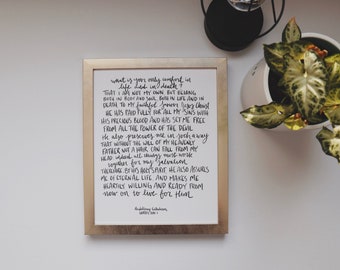 what is your only comfort in
life and in death?
THAT I AM NOT MY OWN, BUT BELONG
BOTH IN BODY AND SOUL, BOTH IN LIFE AND IN
DEATH TO MY faithful Savior Jesus Christ
HE HAS PAID FULLY FOR ALL MY SINS WITH
HIS PRECIOUS BLOOD AND HAS SET ME FREE
FROM ALL THE POWER OF THE DEVIL.
He also preserves me in such a way
THAT WITHOUT THE WILL OF MY HEAVENLY
FATHER NOT A HAIR CAN FALL FROM MY
HEAD. indeed, all things must work
together for my salvation
THEREFORE, BY HIS HOLY SPIRIT HE ALSO ASSURES
ME OF ETERNAL LIFE AND MAKES ME
HEARTILY WILLING AND READY FROM
now on to live for Him.
Heidelberg Catechism,